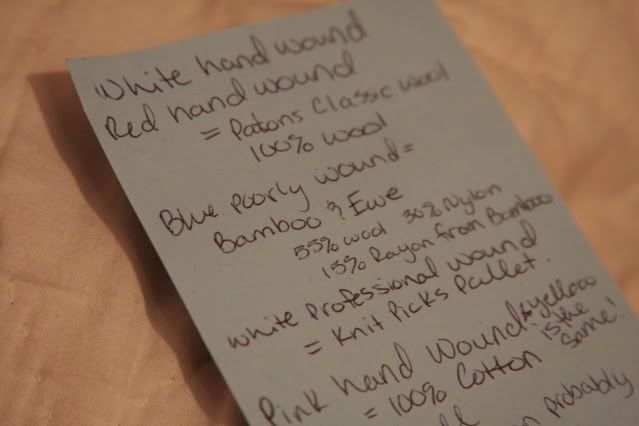 White hand wound
Red hand wound
= Patons Classic Wool
100% Wool
Blue poorly wound =
Bamboo & Ewe
55% wool 30% Nylon
15% Rayon from Bamboo
White professional wound
= Knit Picks Pallet.
Pink hand wound & yellow
is the
= 100% Cotton same!
probably